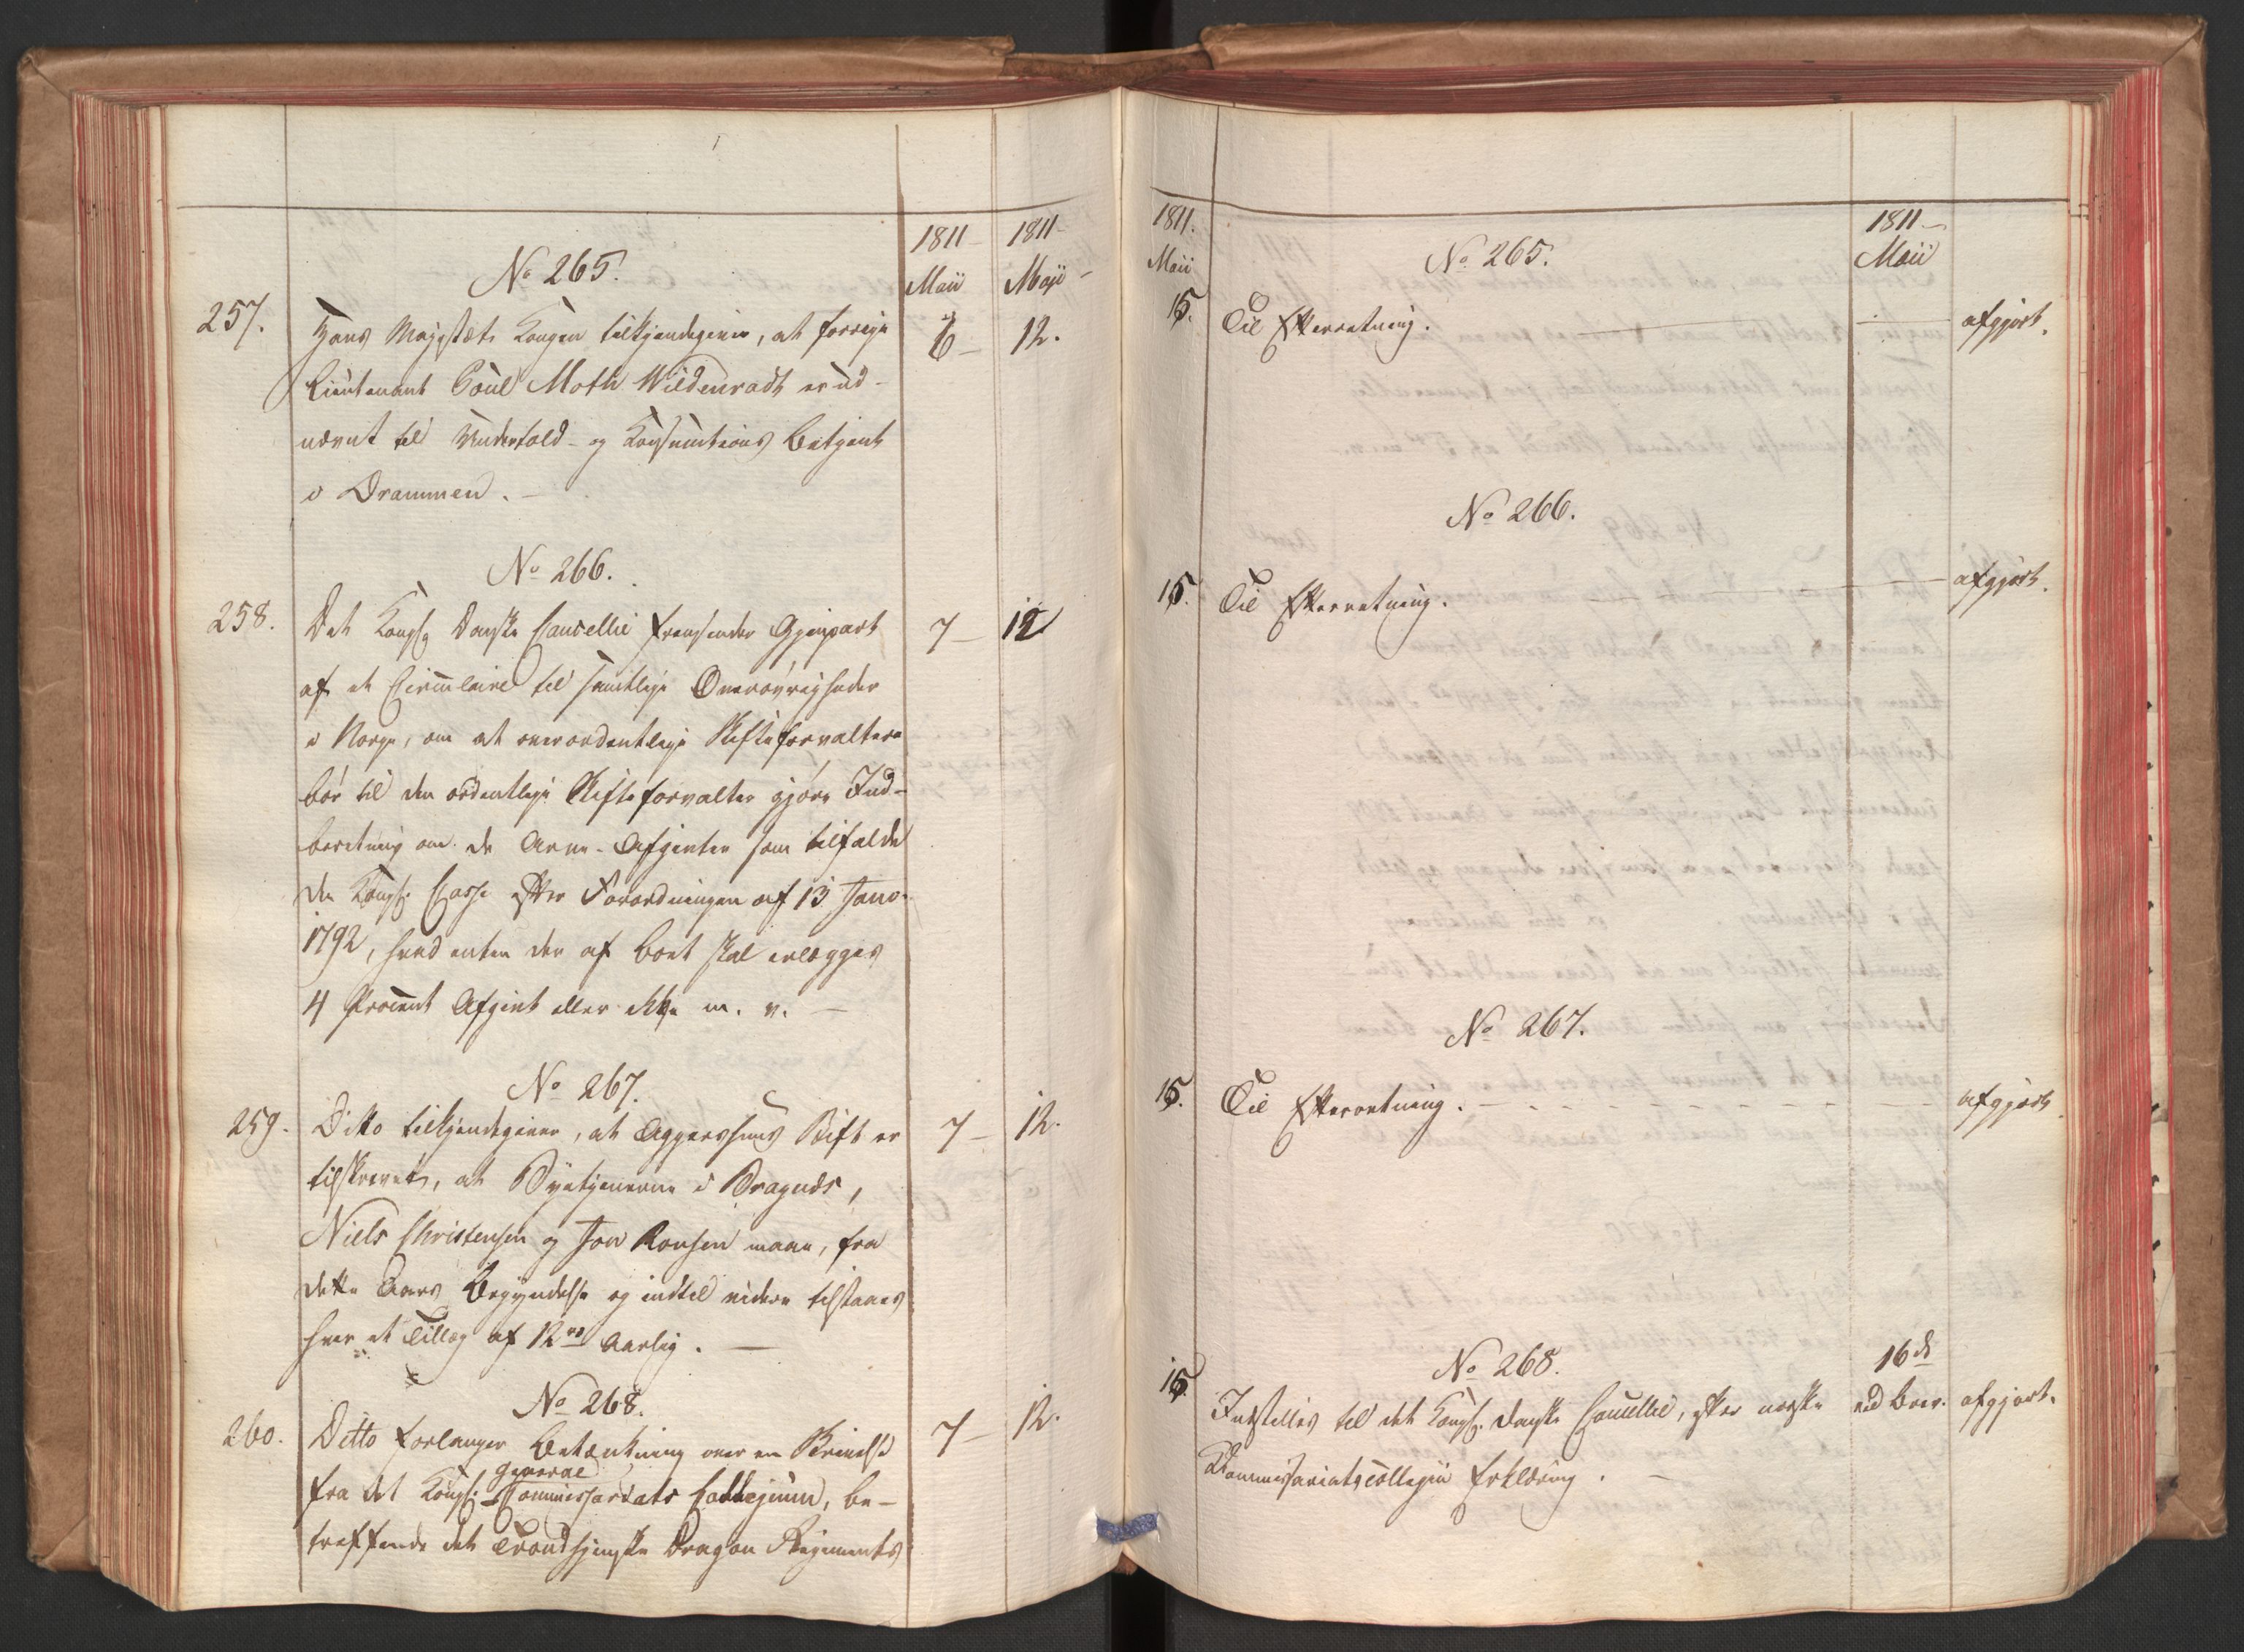 1811 1811
Maii Maji
No 265.
257. Hans Majestæt Kongen tilkjendegiver, at forrige 6 12.
Lieutenant Poul Moth Wildenradt er ud-
nævnt til Undertold- og Konsumtions Betjent
i Drammen.
No 266.
258. Det Kongl. Danske Cancellie fremsender Gjenpart 7 12
af et Circulaire til samtlige Overøvrigheder
i Norge, om at overordentlige Skifteforvaltere
bør til den ordentlige Skifteforvalter gjøre Ind-
beretning om de Arve-Afgivter som tilfalde
den Kongl. Casse efter Forordningen af 13 Janv.
1792, hvad enten der af Boet skal erlægges
4 Procent Afgivt eller ikke m. v.
No 267.
259. Ditto tilkjendegiver, at Aggershuus Stift er 7 12.
tilskrevet, at Byetjenerne i Bragnæs,
Niels Christensen og Jon Ronsen maae, fra
dette Aars Begyndelse og indtil videre tilstaaes
hver et Tillæg af 12 rd aarlig.
No 268.
260. Ditto forlanger Betænkning over en Skrivelse 7 12.
general
fra det Kongl. Commissariats Collegium, be-
treffende det Trondhjemske Dragon Regiments
1811. 1811
Maii Maii
No 265.
15. Til Efterretning. afgjort.
No 266.
15. Til Efterretning. afgjort.
No 267.
15. Til Efterretning. afgjort
No 268. 16de
15 Indstilles til det Kongl. danske Cancellie, efter norske ved Brev. afgjort.
Kommissariatscollegii Erklæring.